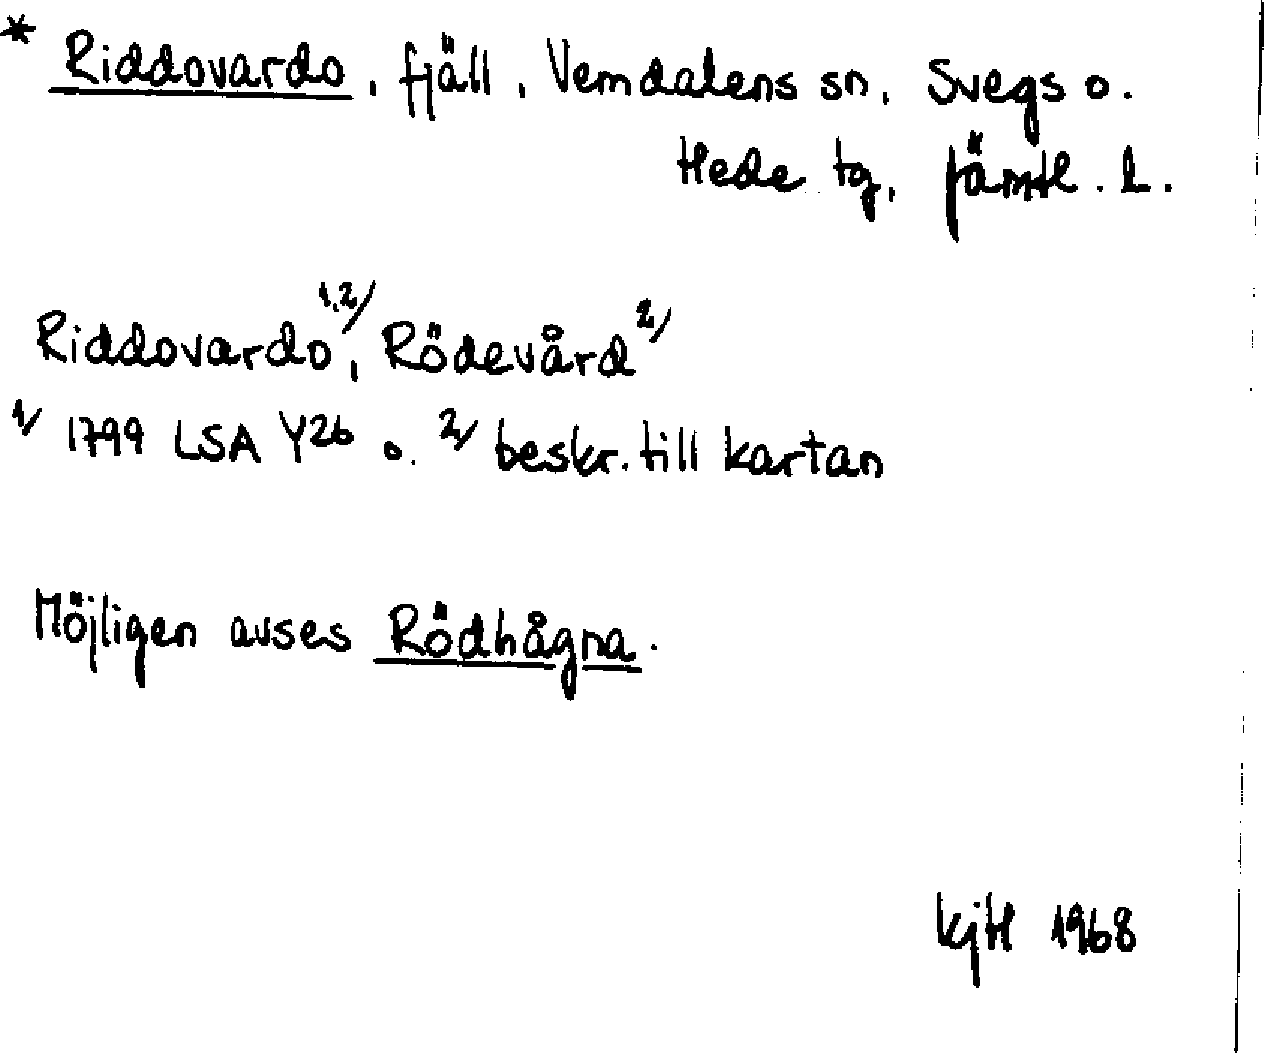 * Riddovardo, fjäll, Vemdalens sn, Svegs o.
Hede tg, Jämtl. l.
Riddovardo 1,2/, Rödevård 2/
1/ 1799 LSA Y26 o. 2/ beskr. till kartan
Möjligen avses Rödhågna.
KjH 1968